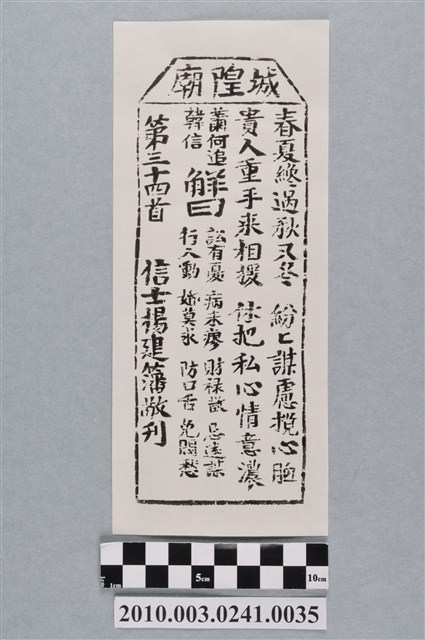 城隍廟
春夏纔過秋又冬 紛〻謀慮攪心胸
貴人垂手來相援 休把私心情意濃
蕭何追
韓信
解曰
訟有憂 病未瘳 財祿散 忌遠謀
行人動 婚莫求 防口舌 免閑愁
第三十四首 信士楊建藩敬刊
1cm 5cm 10cm
2010.003.0241.0035